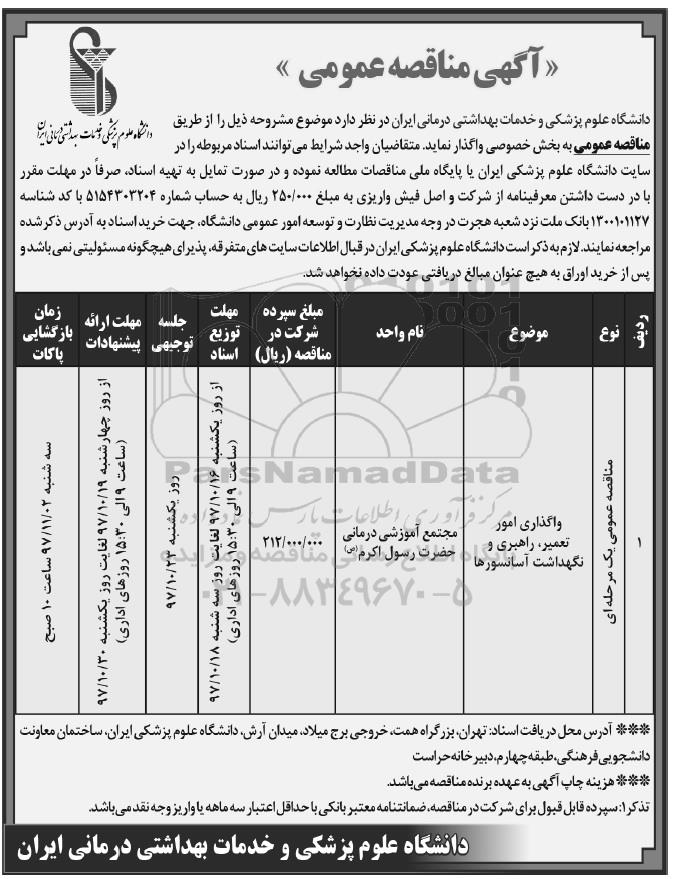 « آگهی مناقصه عمومی »
دانشگاه علوم پزشکی و خدمات بهداشتی درمانی ایران
دانشگاه علوم پزشکی و خدمات بهداشتی درمانی ایران در نظر دارد موضوع مشروحه ذیل را از طریق
مناقصه عمومی به بخش خصوصی واگذار نماید. متقاضیان واجد شرایط می توانند اسناد مربوطه را در
سایت دانشگاه علوم پزشکی ایران یا پایگاه ملی مناقصات مطالعه نموده و در صورت تمایل به تهیه اسناد، صرفاً در مهلت مقرر
با در دست داشتن معرفینامه از شرکت و اصل فیش واریزی به مبلغ ۲۵۰/۰۰۰ ریال به حساب شماره ۵۱۵۴۳۰۳۲۰۴ با کد شناسه
۱۳۰۰۱۰۱۱۲۷ بانک ملت نزد شعبه هجرت در وجه مدیریت نظارت و توسعه امور عمومی دانشگاه، جهت خرید اسناد به آدرس ذکر شده
مراجعه نمایند. لازم به ذکر است دانشگاه علوم پزشکی ایران در قبال اطلاعات سایت های متفرقه، پذیرای هیچگونه مسئولیتی نمی باشد و
پس از خرید اوراق به هیچ عنوان مبالغ دریافتی عودت داده نخواهد شد.
ردیف
نوع
موضوع
نام واحد
مبلغ سپرده
شرکت در
مناقصه (ریال)
مهلت
توزیع
اسناد
جلسه
توجیهی
مهلت ارائه
پیشنهادات
زمان
بازگشایی
پاکات
۱
مناقصه عمومی یک مرحله ای
واگذاری امور
تعمیر، راهبری و
نگهداشت آسانسورها
مجتمع آموزشی درمانی
حضرت رسول اکرم (ص)
۲۱۲/۰۰۰/۰۰۰
از روز یکشنبه ۹۷/۱۰/۱۶ لغایت روز سه شنبه ۹۷/۱۰/۱۸
(ساعت ۹ الی ۱۵:۳۰ روزهای اداری)
روز یکشنبه ۹۷/۱۰/۲۳
از روز چهارشنبه ۹۷/۱۰/۱۹ لغایت روز یکشنبه ۹۷/۱۰/۳۰
(ساعت ۹ الی ۱۵:۳۰ روزهای اداری)
سه شنبه ۹۷/۱۱/۰۲ ساعت ۱۰ صبح
ParsNamadData
مرکز فرآوری اطلاعات پارس نماد داده
پایگاه اطلاع رسانی مناقصه و مزایده
۰۲۱-۸۸۳۴۹۶۷۰-۵
*** آدرس محل دریافت اسناد: تهران، بزرگراه همت، خروجی برج میلاد، میدان آرش، دانشگاه علوم پزشکی ایران، ساختمان معاونت
دانشجویی فرهنگی، طبقه چهارم، دبیرخانه حراست
*** هزینه چاپ آگهی به عهده برنده مناقصه می باشد.
تذکر۱: سپرده قابل قبول برای شرکت در مناقصه، ضمانتنامه معتبر بانکی با حداقل اعتبار سه ماهه یا واریز وجه نقد می باشد.
دانشگاه علوم پزشکی و خدمات بهداشتی درمانی ایران